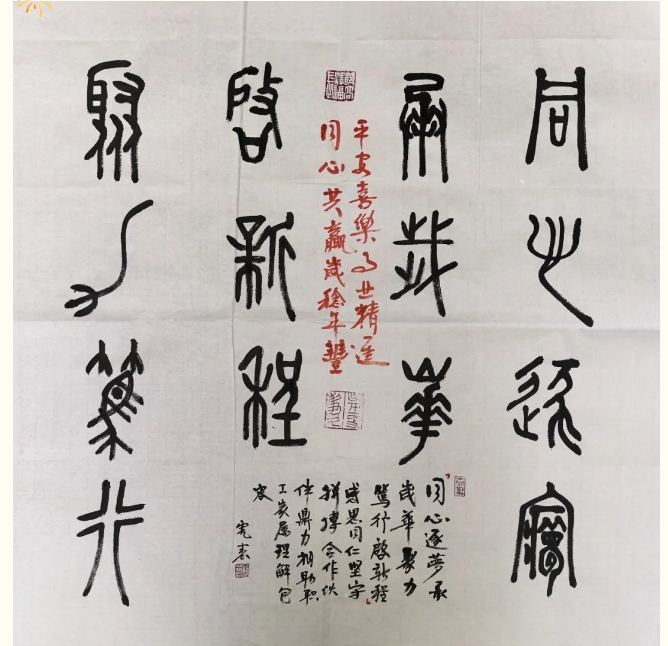 同心逐夢
承歲華
平安喜樂事业精進
同心共贏歲稔年豐
同心逐夢承
歲華聚力
篤行啟新程
感恩同仁堅守
拼搏合作伙
伴鼎力相助职
工家属理解包
容
啟新程
聚力篤行